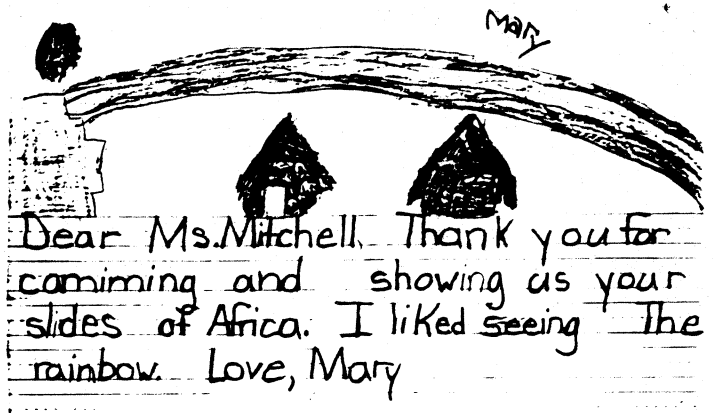 Mary
Dear Ms. Mitchell, Thank you for
camiming and showing us your
slides of Africa. I liked seeing The
rainbow. Love, Mary